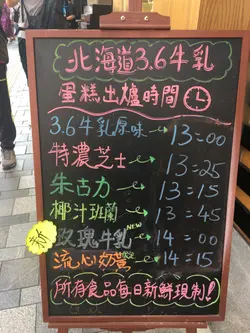 北海道3.6牛乳
蛋糕出爐時間
3.6牛乳原味 → 13:00
特濃芝士 → 13:25
朱古力 → 13:15
椰汁班蘭 → 13:45
新 玫瑰牛乳 NEW → 14:00
流心奶黃 → 14:15
所有食品每日新鮮現制!